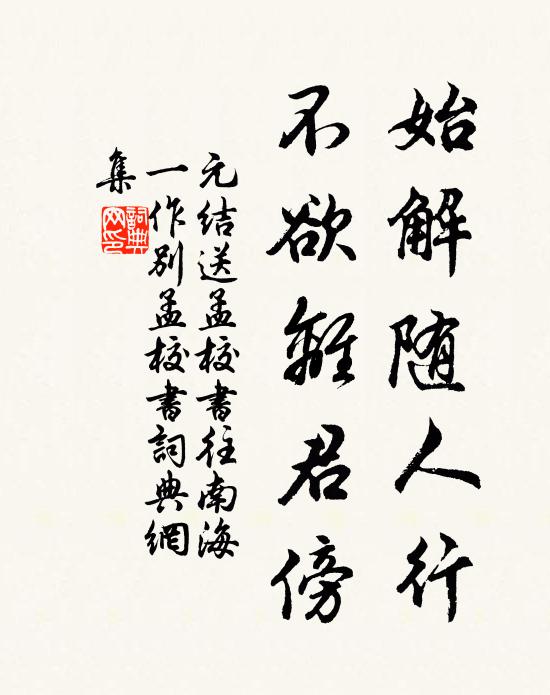 始解随人行
不欲離君傍
元結送孟校書往南海
一作別孟校書詞典網
集
詞典
网印